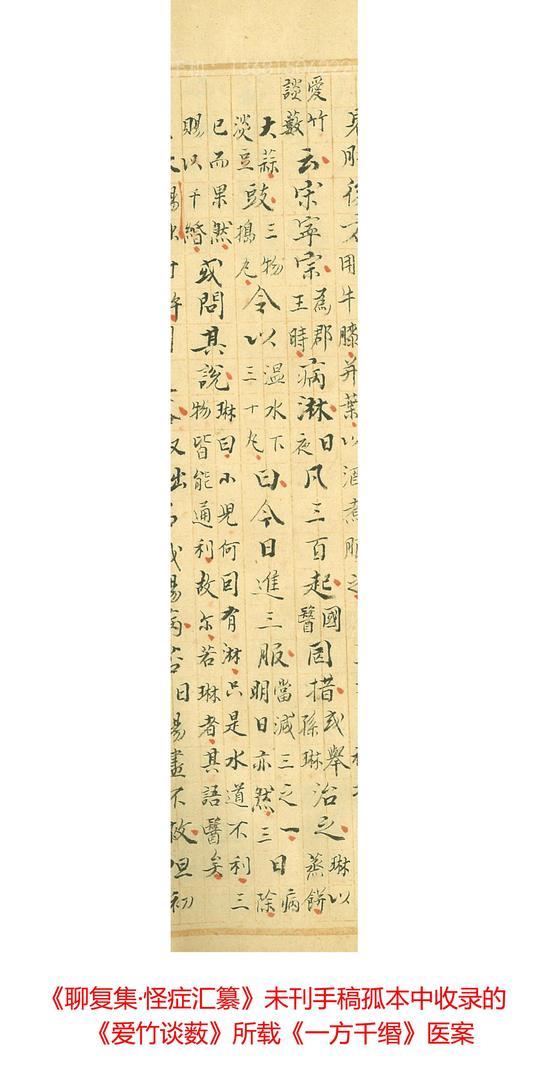 用牛膝并葉以酒煮服之
愛竹談藪云宋寧宗為郡王時病淋日夜凡三百起國醫罔措或舉孫琳治之琳以蒸餅
大蒜淡豆豉三物搗丸令以温水下三十丸曰今日進三服當減三之一明日亦然三日病除
已而果然賜以千緡或問其說琳曰小兒何囙有淋只是水道不利三物皆能通利故尔若琳者其語醫矣
《聊复集·怪症汇纂》未刊手稿孤本中收录的
《爱竹谈薮》所载《一方千缗》医案